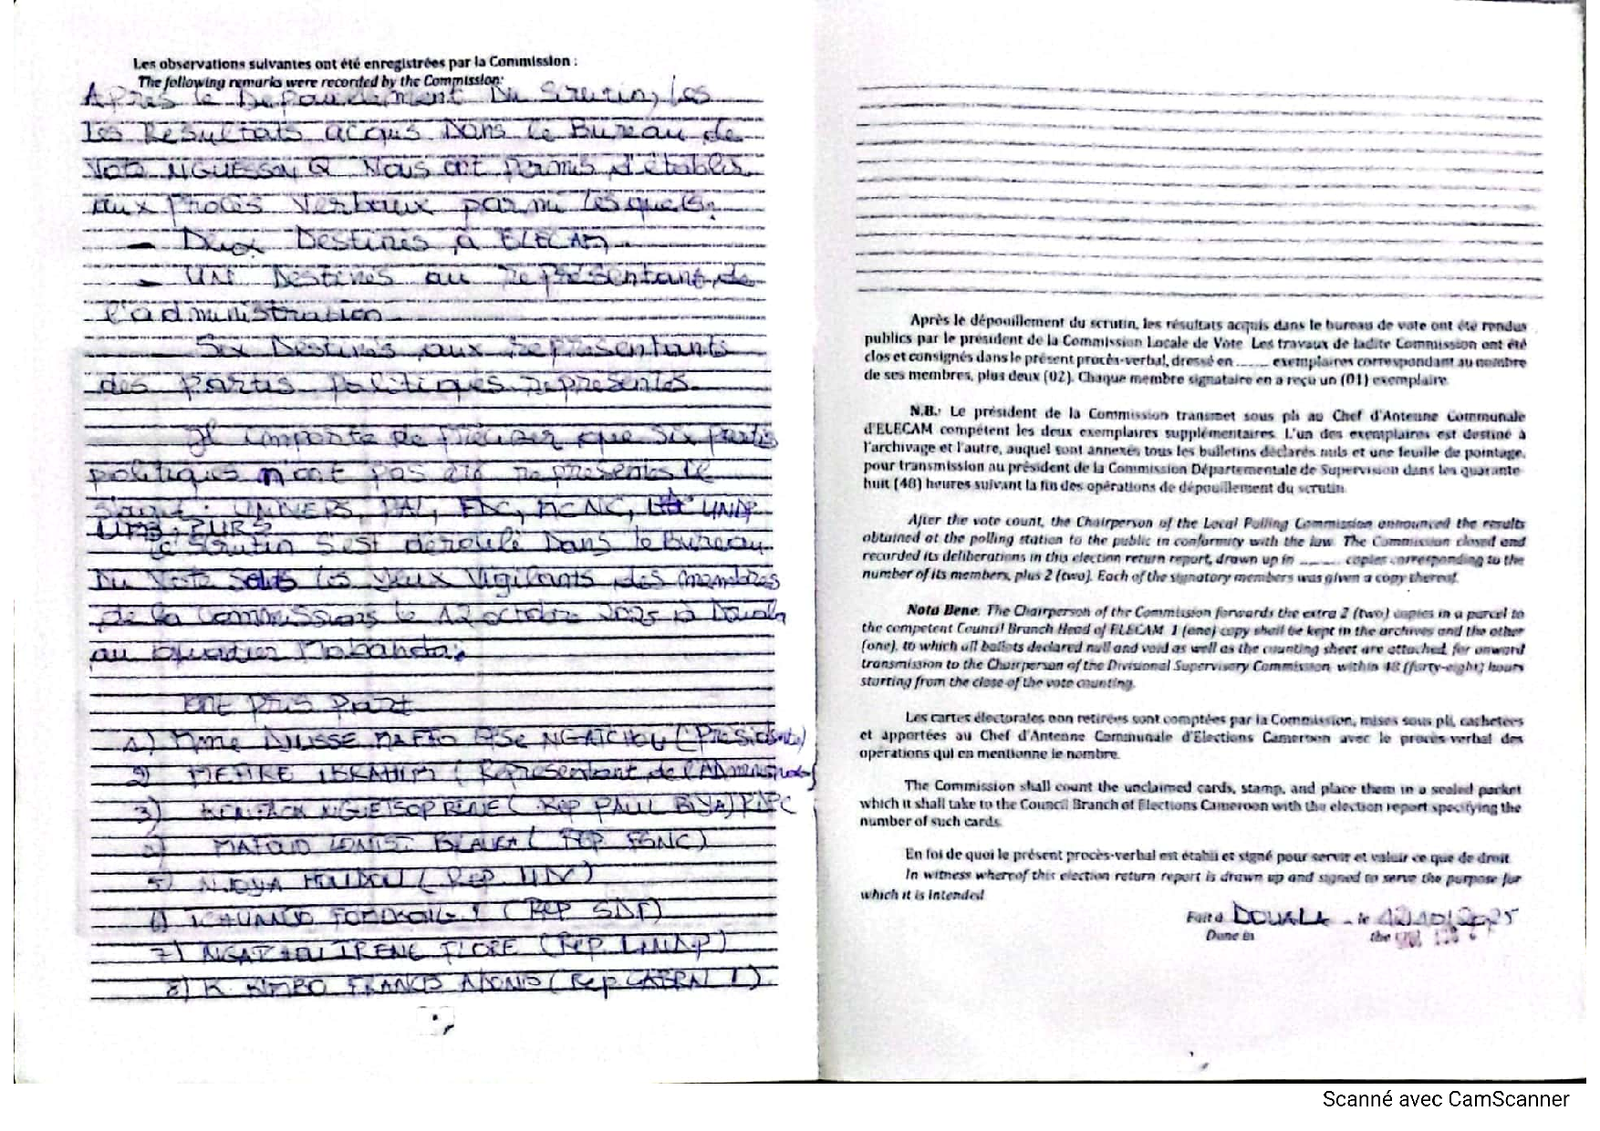 Les observations suivantes ont été enregistrées par la Commission :
The following remarks were recorded by the Commission:
Après le Depouillement Du Scrutin, les
les Resultats acquis Dans le Bureau de
Vote Nous ont permis d'établir
aux Procès Verbaux parmi lesquels:
- Deux Destinés à ELECAM
- UN Destinés au représentant de
l'administration
- Six Destinés aux représentants
des Partis Politiques représentés.
Il importe de préciser que six partis
politiques n'ont pas été représentés Il
s'agit : UNIVERS, PAL, FDC, MCNC, UNDP
UMS, PURS
Le scrutin s'est déroulé Dans le Bureau
Du Vote sous les yeux vigilants des membres
de la Commissions le 12 octobre 2025 à Douala
au quartier
Ont pris part
1) Mme MAFFO Epse NGATCHOU (Présidente)
2) IBRAHIM (Représentant de l'Administration)
3) (Rep PAUL BIYA) RDPC
4) (REP FSNC)
5) NJOYA (Rep UDC)
6) (REP SDF)
7) IRENE FLORE (Rep )
8) K. FRANCIS ADONIS (Rep CABRAL L)
Après le dépouillement du scrutin, les résultats acquis dans le bureau de vote ont été rendus
publics par le président de la Commission Locale de Vote. Les travaux de ladite Commission ont été
clos et consignés dans le présent procès-verbal, dressé en ........ exemplaires correspondant au nombre
de ses membres, plus deux (02). Chaque membre signataire en a reçu un (01) exemplaire.
N.B.: Le président de la Commission transmet sous pli au Chef d'Antenne Communale
d'ELECAM compétent les deux exemplaires supplémentaires. L'un des exemplaires est destiné à
l'archivage et l'autre, auquel sont annexés tous les bulletins déclarés nuls et une feuille de pointage,
pour transmission au président de la Commission Départementale de Supervision dans les quarante-
huit (48) heures suivant la fin des opérations de dépouillement du scrutin.
After the vote count, the Chairperson of the Local Polling Commission announced the results
obtained at the polling station to the public in conformity with the law. The Commission closed and
recorded its deliberations in this election return report, drawn up in ........ copies corresponding to the
number of its members, plus 2 (two). Each of the signatory members was given a copy thereof.
Nota Bene: The Chairperson of the Commission forwards the extra 2 (two) copies in a parcel to
the competent Council Branch Head of ELECAM. 1 (one) copy shall be kept in the archives and the other
(one), to which all ballots declared null and void as well as the counting sheet are attached, for onward
transmission to the Chairperson of the Divisional Supervisory Commission, within 48 (forty-eight) hours
starting from the close of the vote counting.
Les cartes électorales non retirées sont comptées par la Commission, mises sous pli, cachetées
et apportées au Chef d'Antenne Communale d'Elections Cameroon avec le procès-verbal des
opérations qui en mentionne le nombre.
The Commission shall count the unclaimed cards, stamp, and place them in a sealed packet
which it shall take to the Council Branch of Elections Cameroon with the election report specifying the
number of such cards.
En foi de quoi le présent procès-verbal est établi et signé pour servir et valoir ce que de droit.
In witness whereof this election return report is drawn up and signed to serve the purpose for
which it is intended.
Fait à DOUALA le 12/10/2025
Done in the
Scanné avec CamScanner